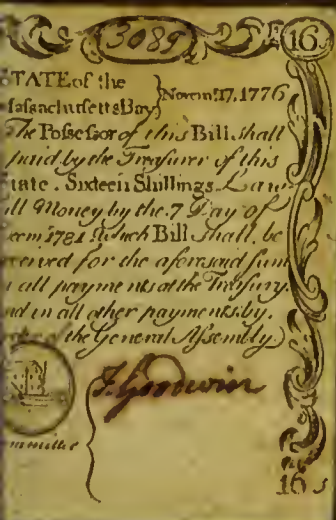 3089 16 s
TATE of the
assachusettsBay Novem 17, 1776
The Possessor of this Bill shall
paid by the Treasurer of this
tate. Sixteen Shillings Law
ll Money by the 7 Day of
ecem 1781 Which Bill shall be
ceived for the aforesaid sum
all payments at the Treasury,
nd in all other payments by,
of the General Assembly.
Goodwin
ommittee
16 s